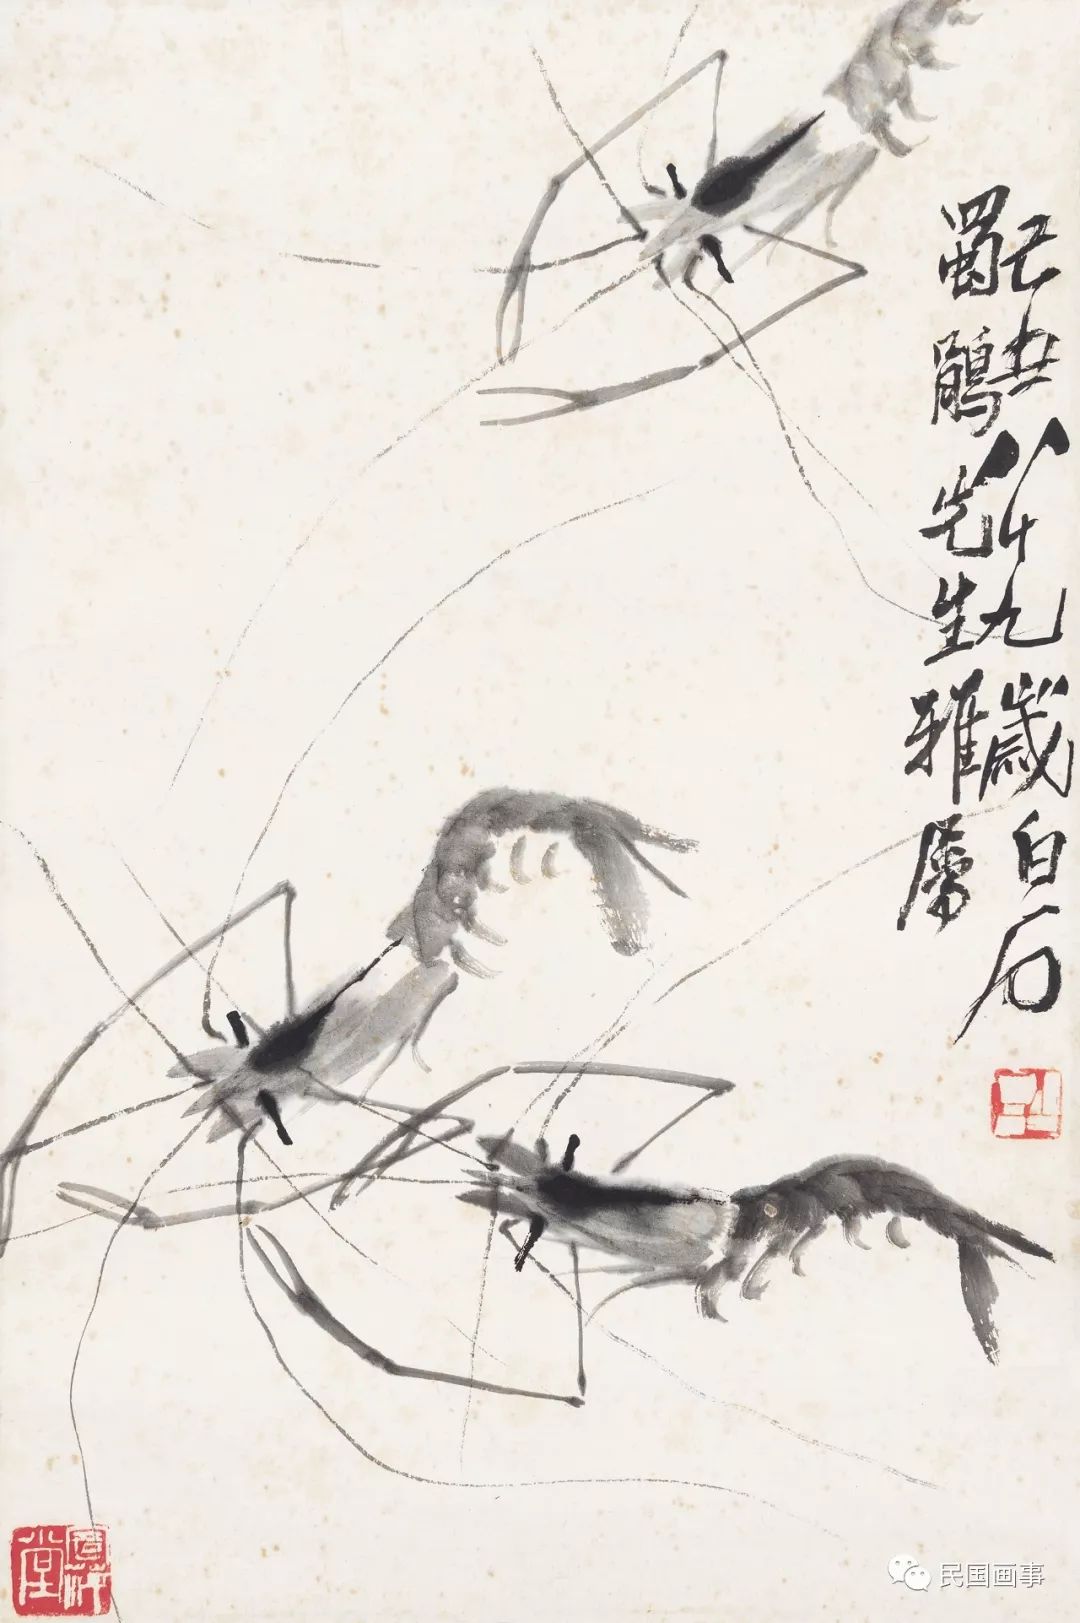 己丑八十九歲白石
蜀鵑先生雅屬
民国画事